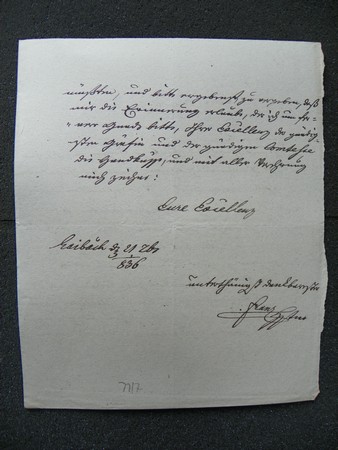 müßten, und bitte ergebenst zu ergeben, daß
mir die Erinnerung erlaubt, da ich um fe-
-ner Gnade bitte, Ihre Excellenz der gnädig-
sten Gräfin und der gnädigen Comtesse
die Handküsse, und mit aller Verehrung
mich zeichne:
Eure Excellenz
Laibach d 21
836
unterthänigst dankbarster
Franz